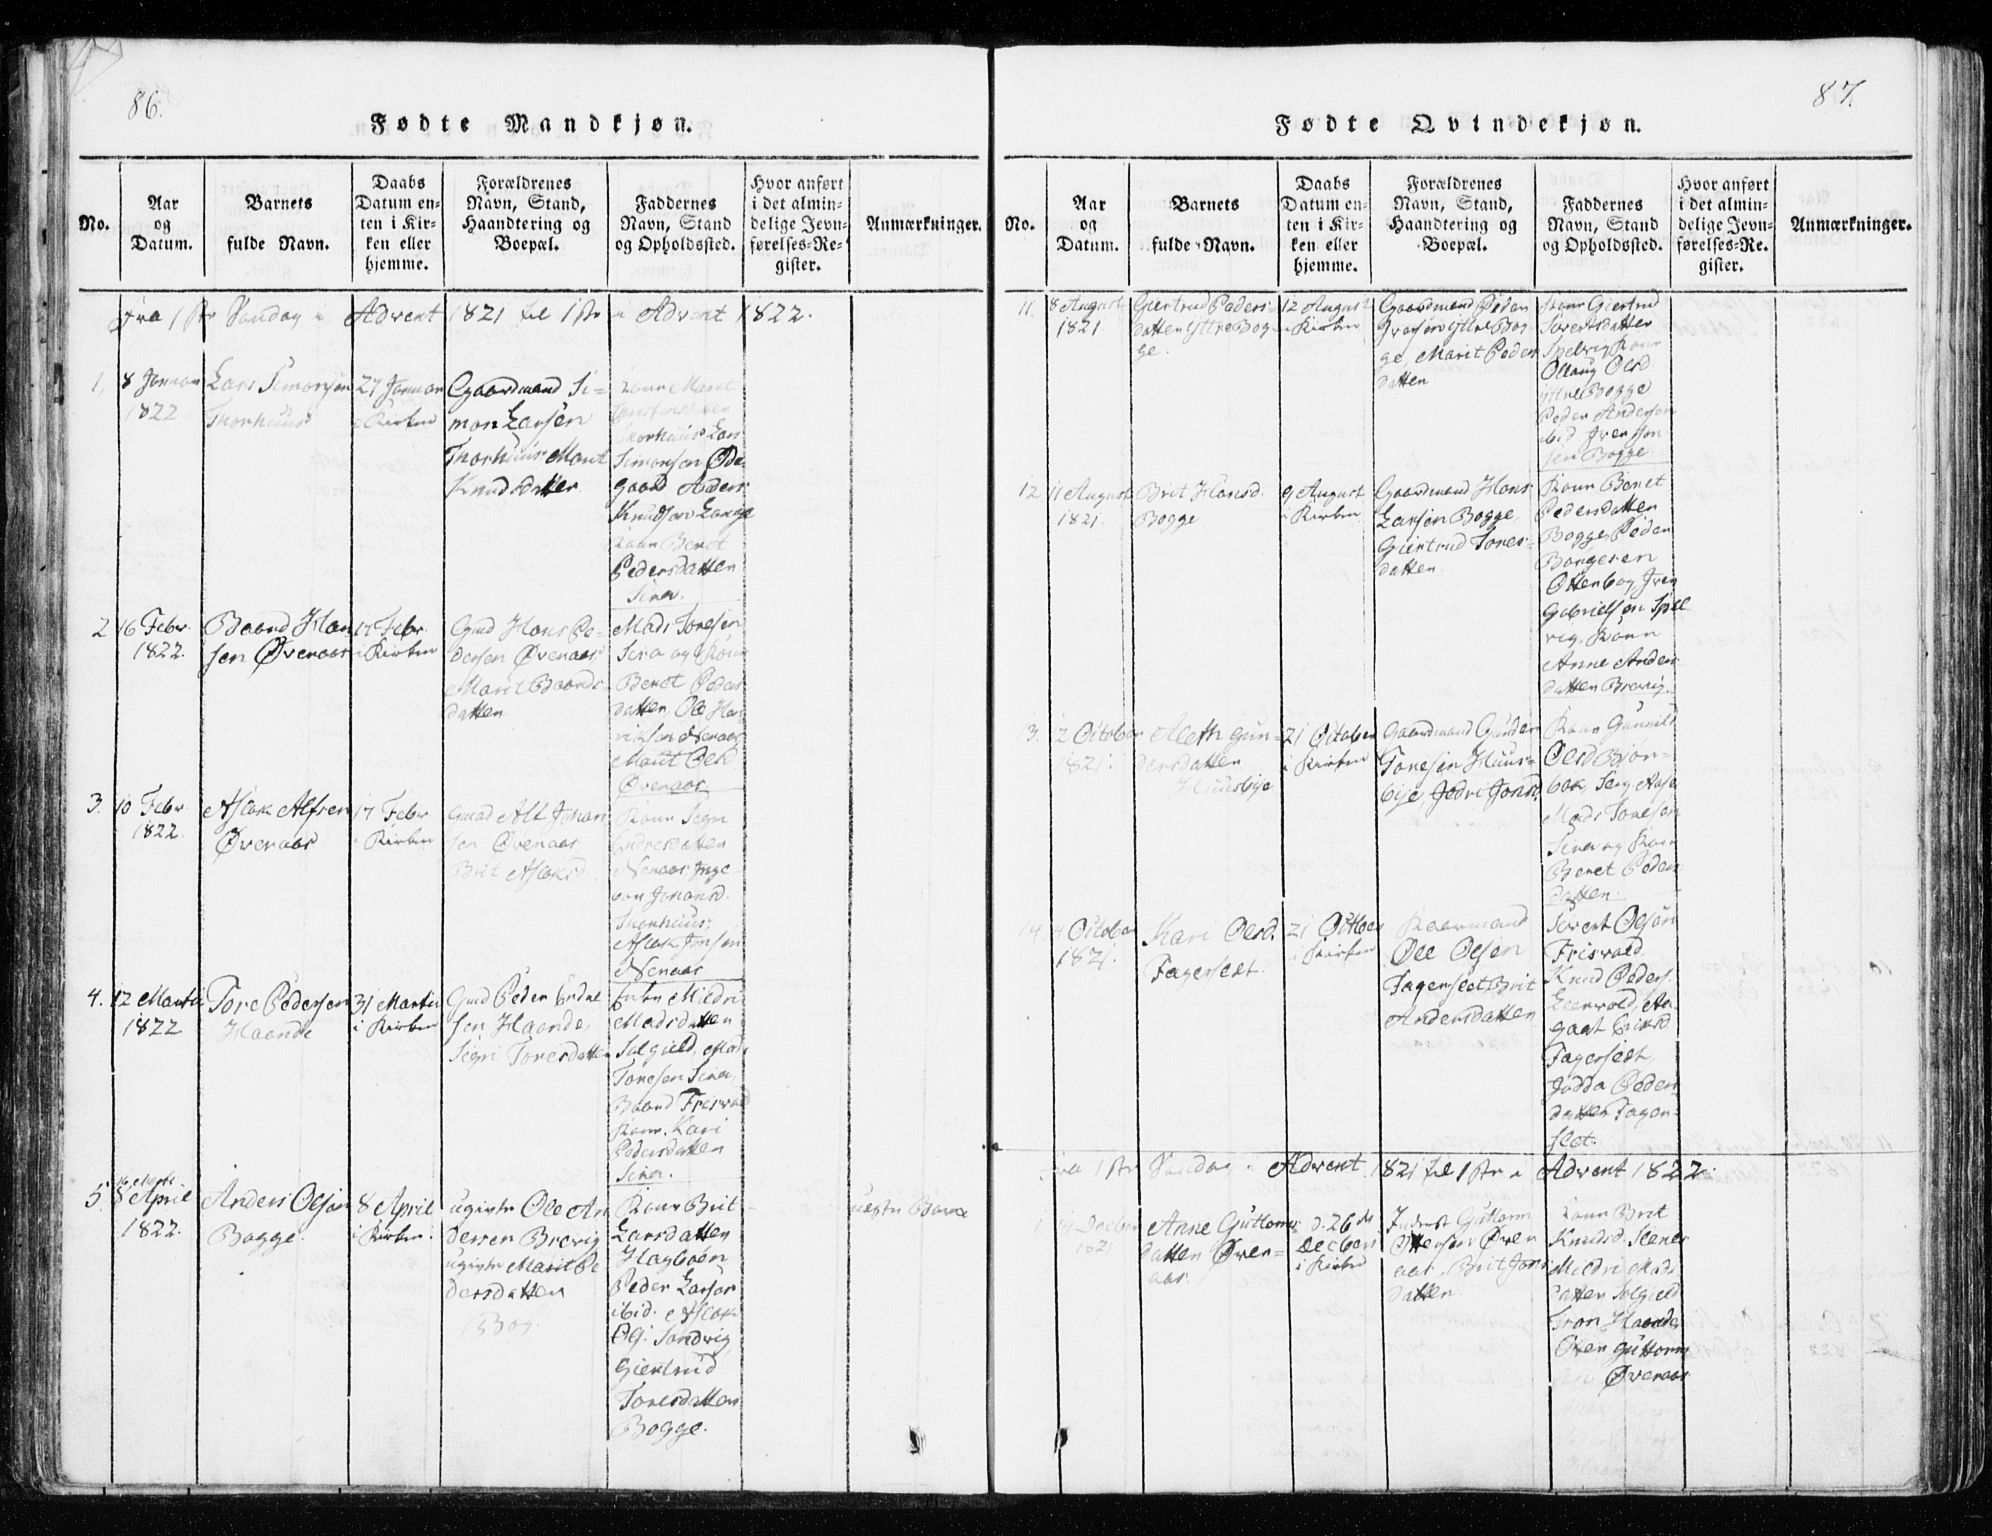 86.
Fødte Mandkjøn.
No.
Aar
og
Datum.
Barnets
fulde Navn.
Daabs
Datum en-
ten i Kir-
ken eller
hjemme.
Forældrenes
Navn, Stand,
Haandtering og
Boepæl.
Faddernes
Navn, Stand
og Opholdssted.
Hvor anført
i det almin-
delige Jevn-
førelses-Re-
gister.
Anmærkninger.
Fra 1ste Søndag i Advent 1821 til 1ste i Advent 1822.
1,
8 Januar
1822
Lars Simonsøn
Thorhuus
27 Januar
i Kirken
Gaardmand Si=
mon Larsen
Thorhuus Marit
Knudsdatter
Kone Marit
Thorhuus Lars
Simonsen Øde-
gaard Anders
Knudsen Lange
Kone Beret
Pedersdatten
Sira.
2
16 Febr.
1822.
Baard Han
sen Øvenaas
17 Febr
i Kirken
Gmd Hans Pe-
dersen Øvenaas,
Marit Baards-
datten
Mads Toresen
Sira og Kone
Beret Peders
datten, Ole Hen
riksen Nenaas
Marit Olsd
Øvenaas
3.
10 Febr
1822.
Aslak Alfsen
Øvenaas
17 Febr
i Kirken
Gmd Alf Johan
sen Øvenaas
Brit Aslaksd.
Kone Sigri
Endresdatten
Nenaas Inge-
bor Johansd.
Thorhuus,
Aslak Jonsen
Nenaas
4.
12 Martii
1822
Tore Pedersen
Haande
31 Martii
i Kirken
Gmd Peder Endal
sen Haande,
Sigri Toresdatt
Enke Mildri
Madsdatten
Solgield, Mads
Toresen Sira,
Baard Friswold
Kone Kari
Pedersdatten
Sira.
5.
8 April
1822.
Anders Olsøn
Bogge.
8 April
i Kirken.
ugivte Ole An
dersen Brevig
ugivte Marit Pe
dersdatten
Bog.
Kone Brit
Larsdatten
Hagboen
Peder Larsen
ibid. Aslak
Ols. Sandvig
Giertrud
Toresdatten
Bogge.
uegte Barn
87.
Fødte Qvindekjøn.
No.
Aar
og
Datum.
Barnets
fulde Navn.
Daabs
Datum en-
ten i Kir-
ken eller
hjemme.
Forældrenes
Navn, Stand,
Haandtering og
Boepæl.
Faddernes
Navn, Stand
og Opholdssted.
Hvor anført
i det almin-
delige Jevn-
førelses-Re-
gister.
Anmærkninger.
11.
8 August
1821
Giertrud Peders-
datten Yttre Bog-
ge.
12 August
i Kirken
Gaardmand Peder
Iversen Yttre Bog-
ge, Marit Peders
datten
Kone Giertrud
Sivertsdatten
Spelvig, Kone
Ollaug Olsd.
Yttre Bogge
Peder Andersen
ibid Iver
sen Bogge
12
11 August
1821.
Brit Hansd.
Bogge
9 August
i Kirken
Gaardmand Hans
Larsen Bogge,
Giertrud Tores-
datten.
Kone Beret
Pedersdatten
Bogge, Peder
Borgersen
Ottenbog, Iver
Gabrielsøn Spill
vig, Kone
Anne Anders
datten Brevig.
13.
2 October
1821.
Aleth Gun-
dersdatten
Huusbye
21 October
i Kirken
Gaardmand Gunder
Toresen Huus-
bye, Jedri Jonsd.
Kone Gunnild
Olsd Bjør-
bak,
Mads Toresen
Sira og Kone
Beret Peders
datten.
14.
4 October
1821.
Kari Olsd.
Fagerslet.
21 October
i Kirken
Ole Olsen
Fagerslet Brit
Andersdatten
Sivert Olsøn
Friswold.
Knud Peders.
Aa
gaat Eriksd
Fagerslet
Jødda Peders
datten Fager-
slet.
Fra 1ste Søndag i Advent 1821 til 1ste i Advent 1822.
1
Decber
1821
Anne Guttorms
datten Øven-
aas.
d. 26de
Decber
i Kirken
Inderst Guttorm
Ottersen Øven
aas, Brit Jons
datten.
Kone Brit
Knudsd. Stener
Mildri Mads
datten Solgield
Tron Haande,
Oten Guttorm
Øvenaas